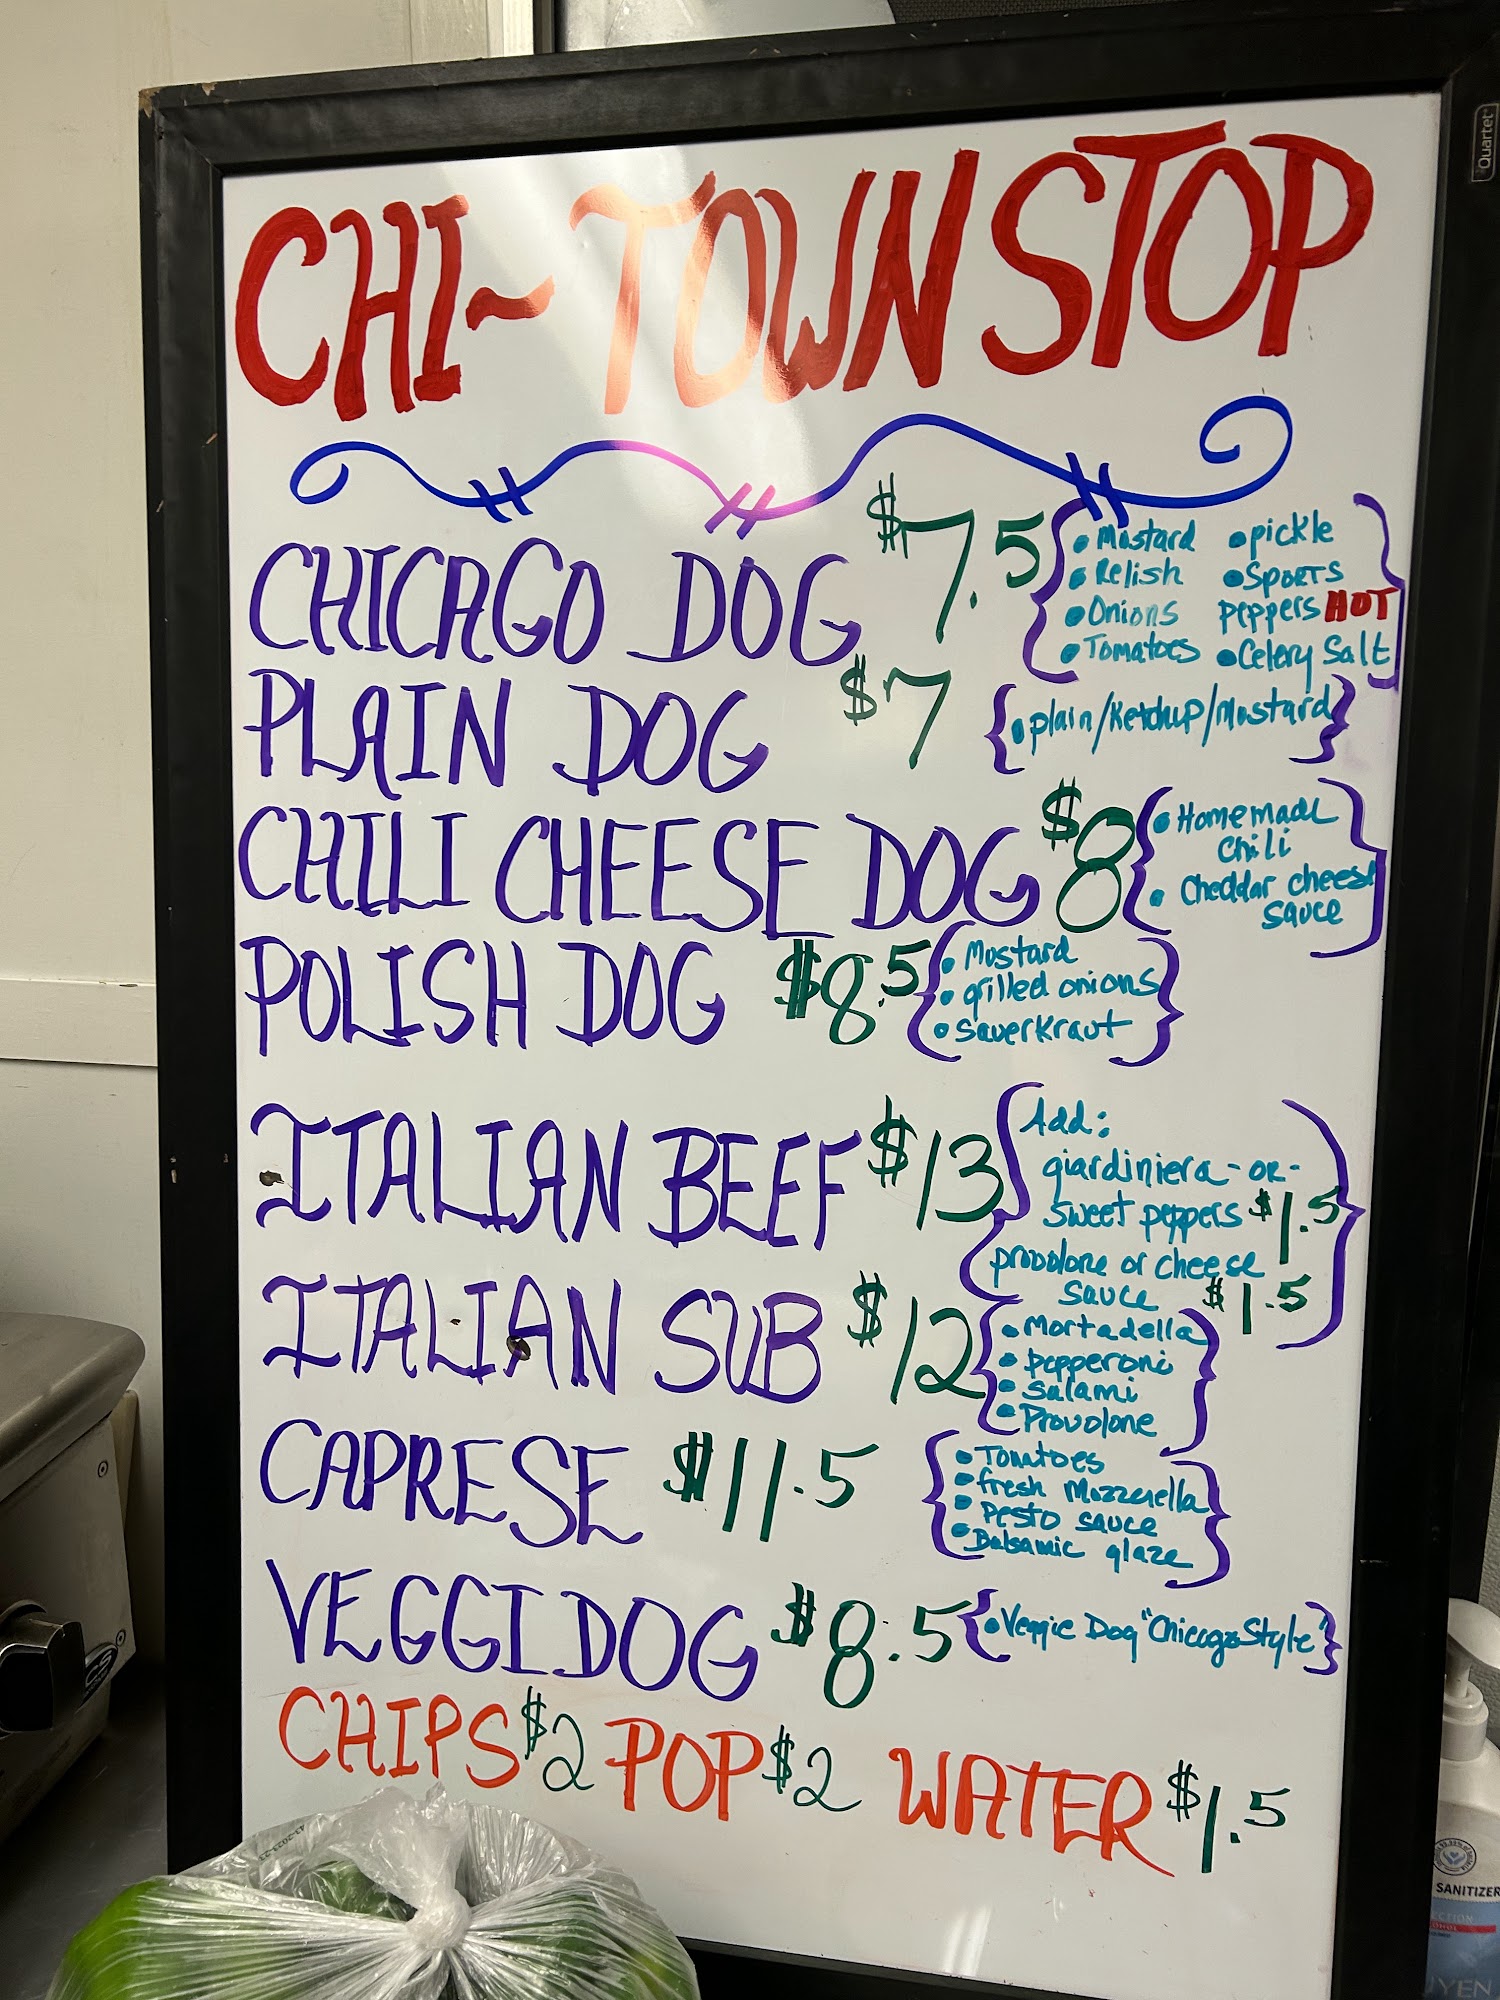 Quartet
CHI~TOWN STOP
CHICAGO DOG $7.5
• Mustard • pickle
• Relish • SPORTS
• Onions peppers HOT
• Tomatoes • Celery Salt
PLAIN DOG $7
• plain/Ketchup/Mustard
CHILI CHEESE DOG $8
• Homemade
chili
• Cheddar cheese
sauce
POLISH DOG $8.5
• Mustard
• grilled onions
• Sauerkraut
ITALIAN BEEF $13
Add:
giardiniera -OR-
sweet peppers $1.5
provolone or cheese
sauce $1.5
ITALIAN SUB $12
• Mortadella
• pepperoni
• salami
• Provolone
CAPRESE $11.5
• Tomatoes
• fresh Mozzerella
• Pesto sauce
• Balsamic glaze
VEGGI DOG $8.5
• Veggie Dog "Chicago Style"
CHIPS $2 POP $2 WATER $1.5
SANITIZER